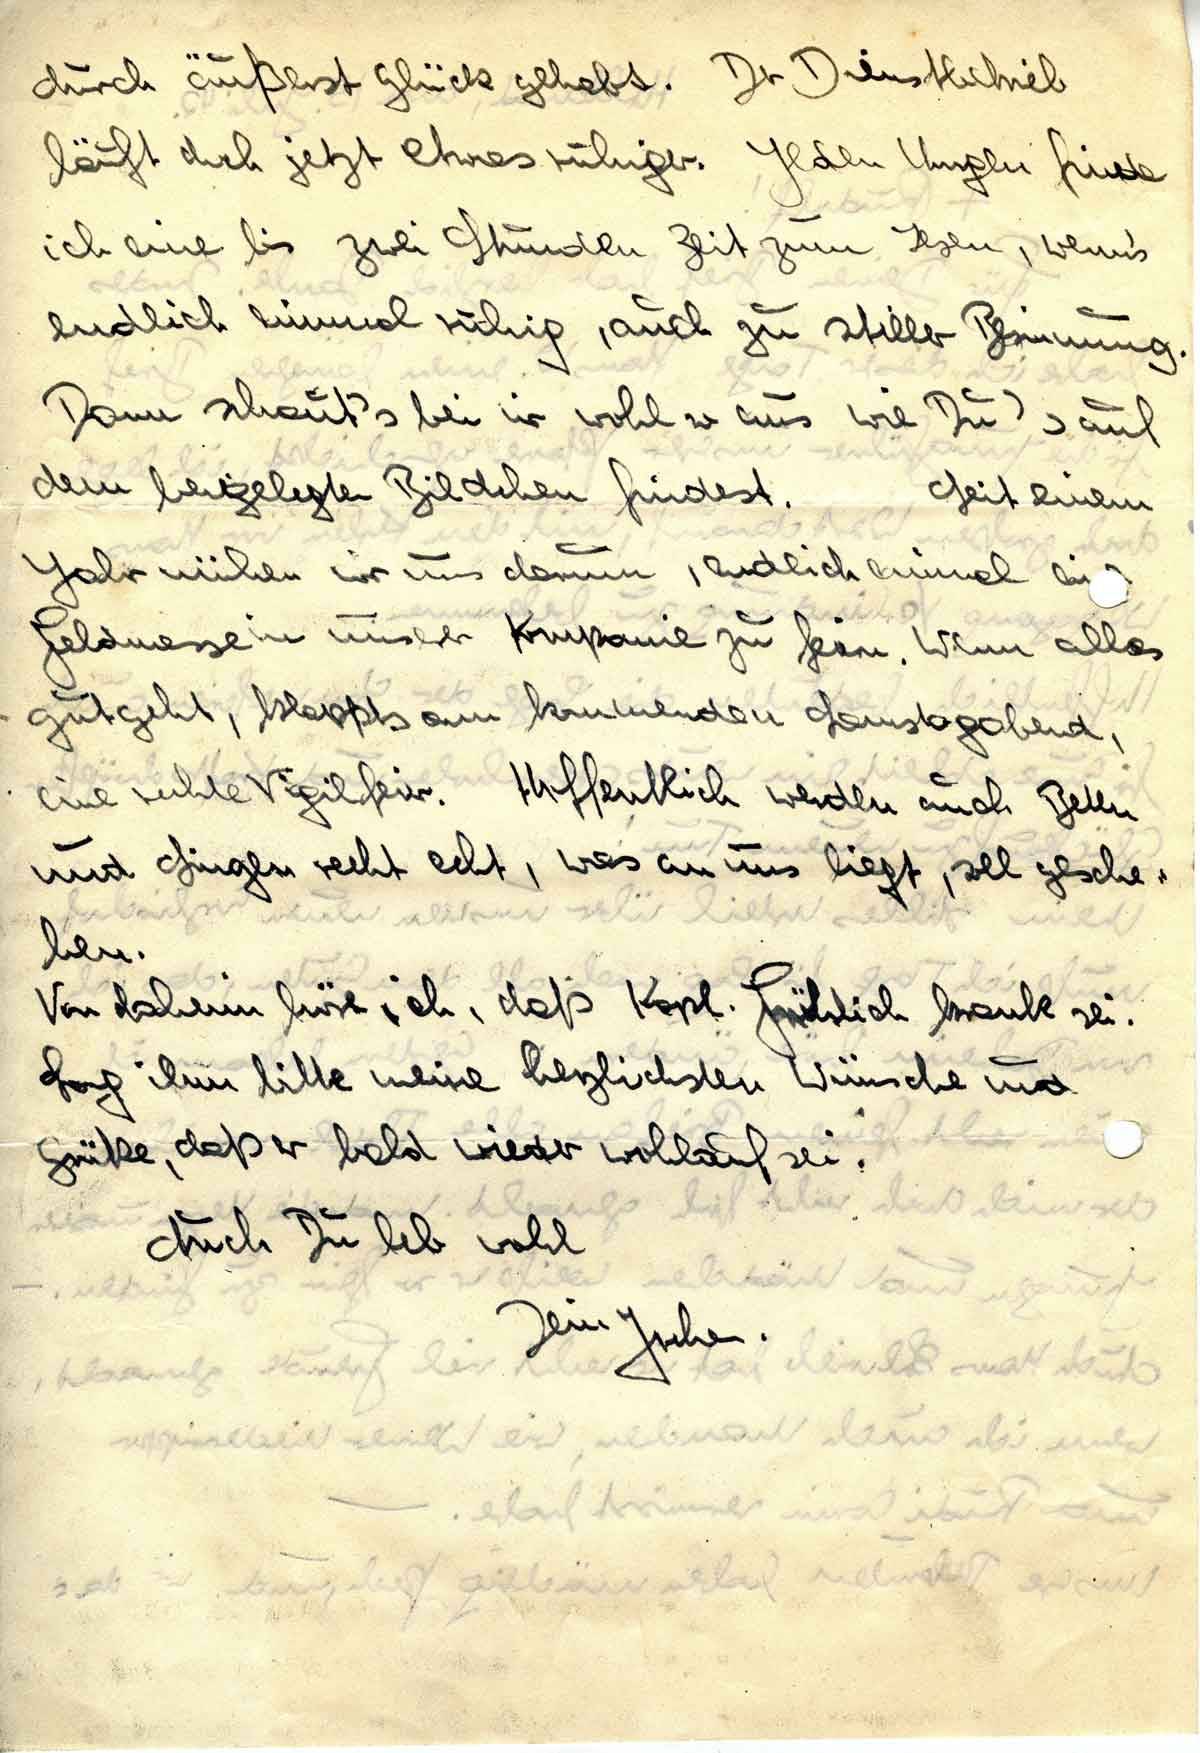 durch äußerst Glück gehabt. Der Dienstbetrieb
läuft doch jetzt etwas ruhiger. Jeden Morgen finde
ich eine bis zwei Stunden Zeit zum Lesen, wenn's
endlich einmal ruhig, auch zu stiller Besinnung.
Dann schaut's bei mir wohl so aus wie Du's auf
dem beigelegten Bildchen findest. Seit einem
Jahr mühen wir uns darum, endlich einmal eine
Feldmesse in unserer Kompanie zu feiern. Wenn alles
gutgeht, klappts am kommenden Samstagabend,
eine rechte Vigilfeier. Hoffentlich werden auch Beten
und Singen recht echt, was an uns liegt, soll gesche-
hen.
Von daheim höre ich, daß Kapl. Fröhlich krank sei.
Sag ihm bitte meine herzlichsten Wünsche und
Grüße, daß er bald wieder wohlauf sei.
Auch Du leb wohl
Dein